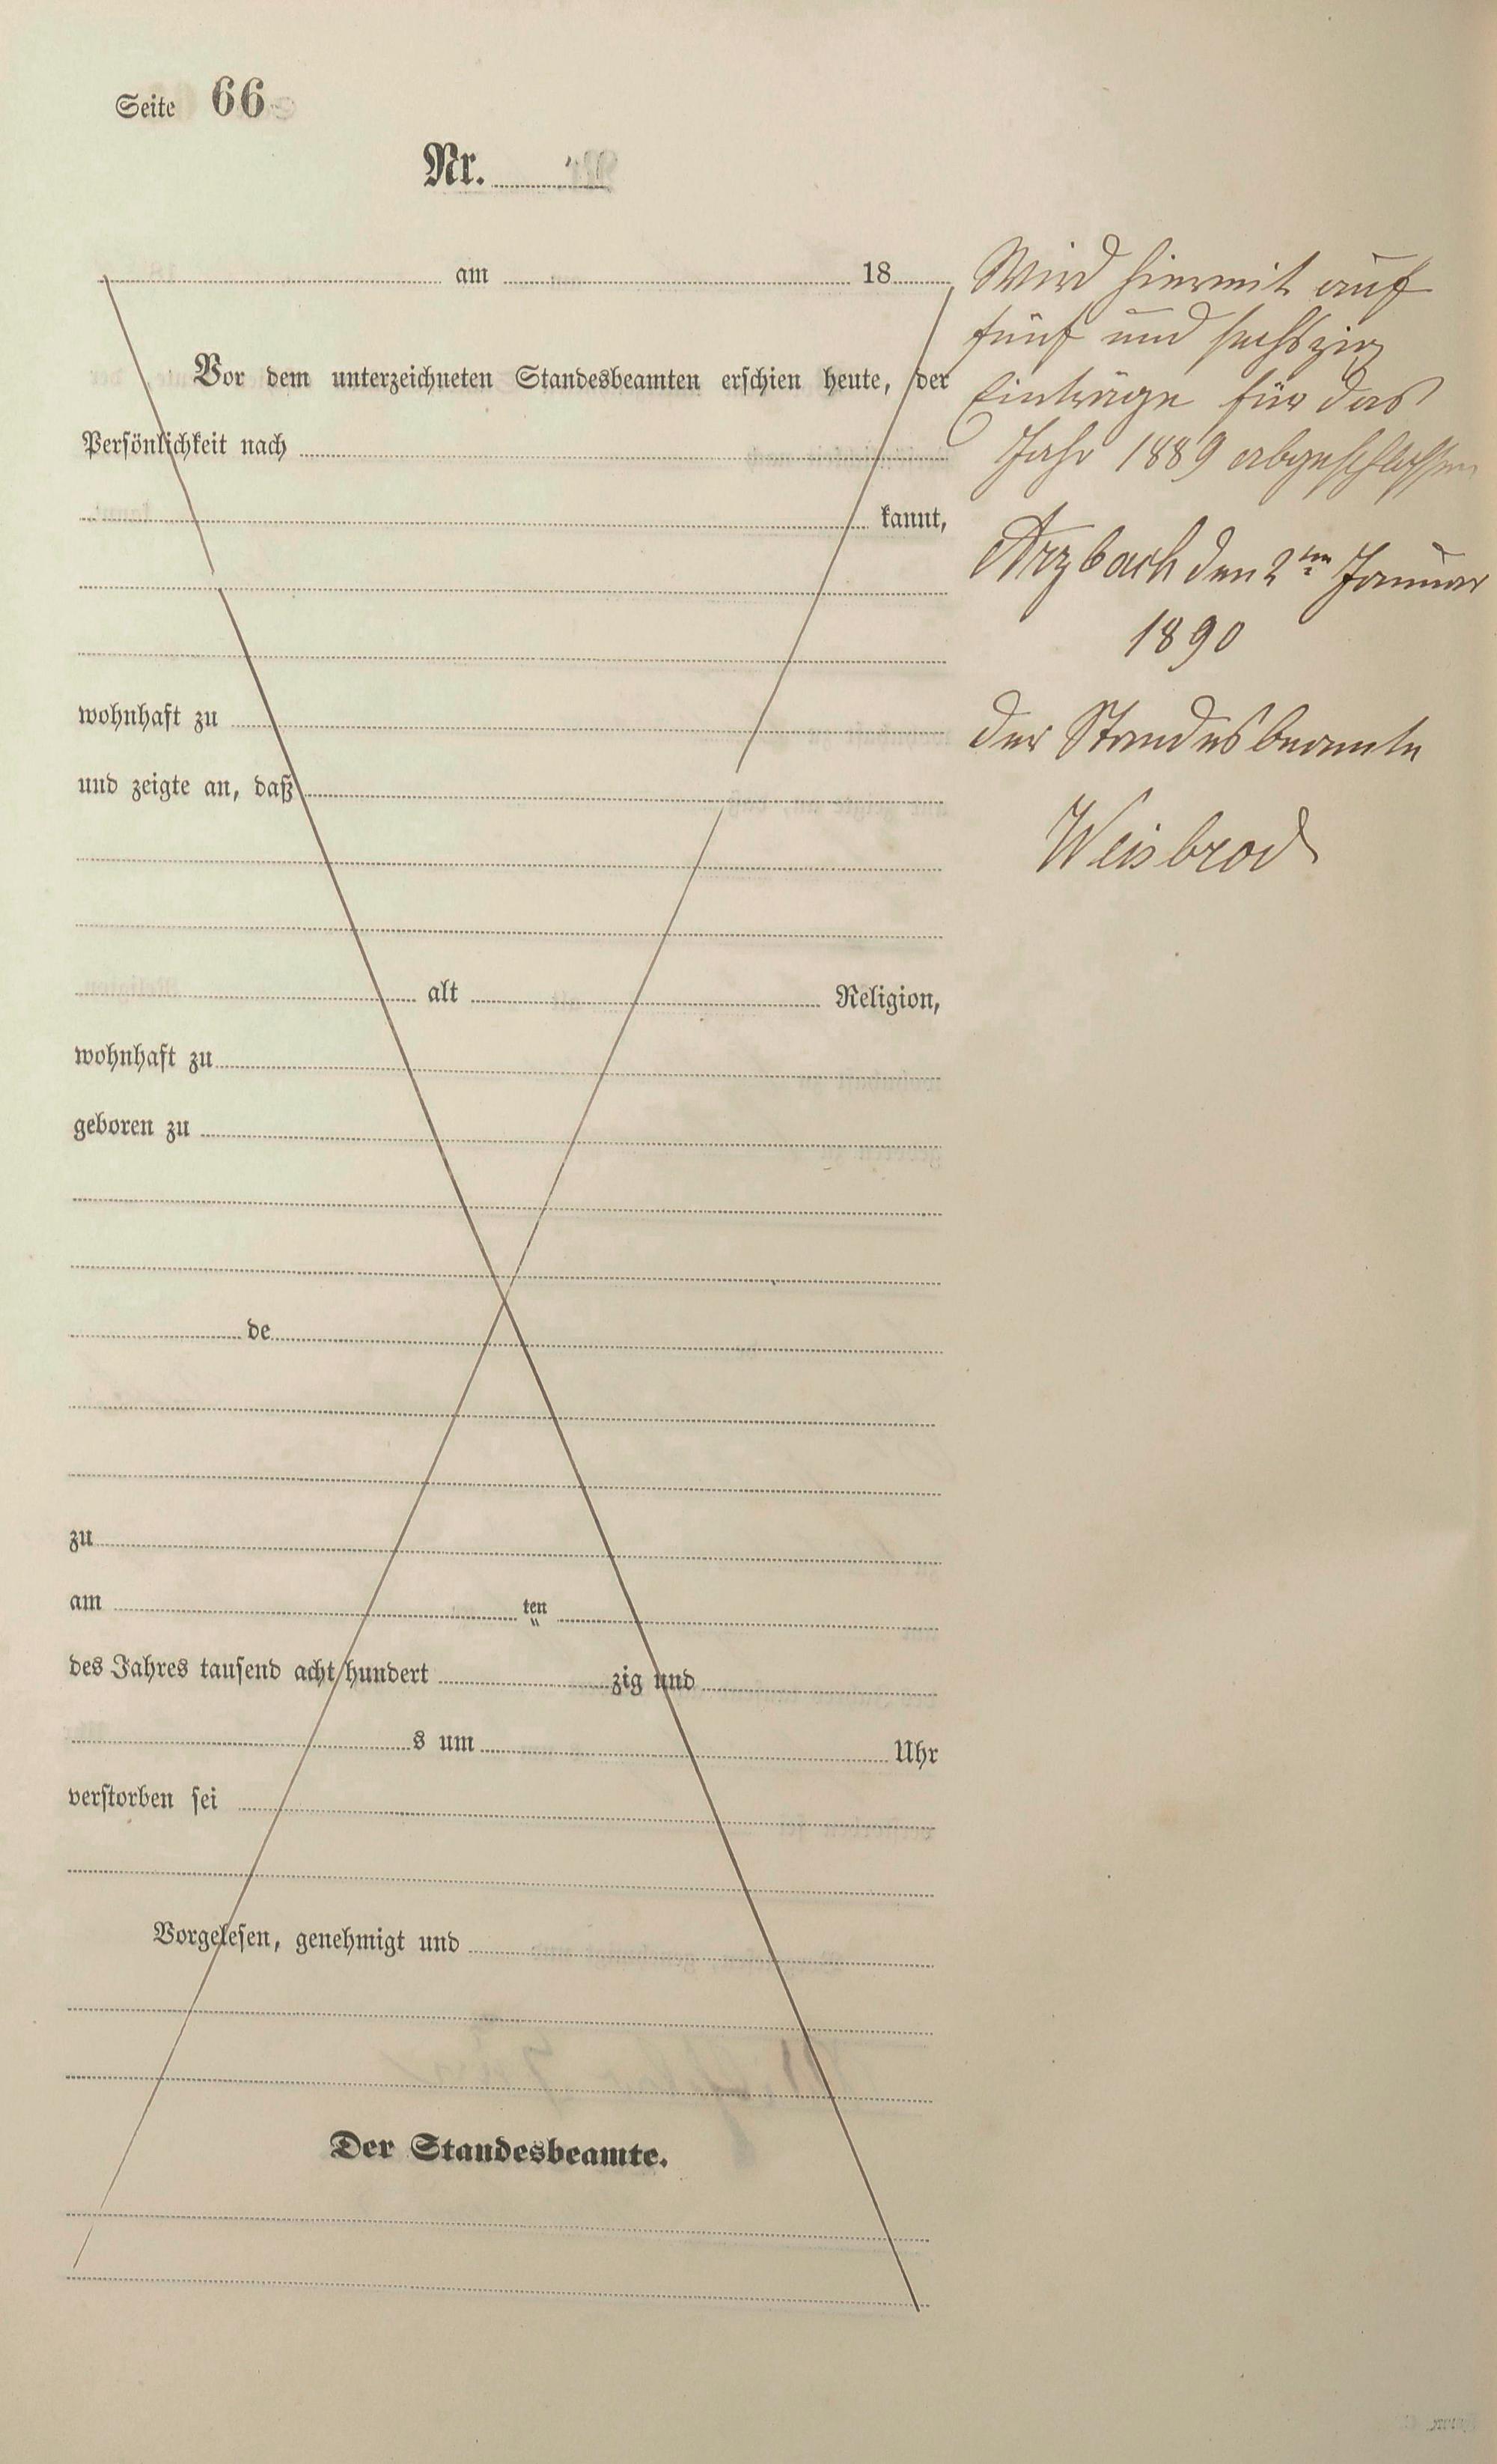 Seite 66
Nr.
am 18
Vor dem unterzeichneten Standesbeamten erschien heute, der
Persönlichkeit nach
kannt,
wohnhaft zu
und zeigte an, daß
alt Religion,
wohnhaft zu
geboren zu
de
zu
am ten
des Jahres tausend acht hundert zig und
s um Uhr
verstorben sei
Vorgelesen, genehmigt und
Der Standesbeamte.
Wird hiermit auf
fünf und sechszig
Einträge für das
Jahr 1889 abgeschlossen
Arzbach den 2ten Januar
1890
Der Standesbeamte
Weisbrod